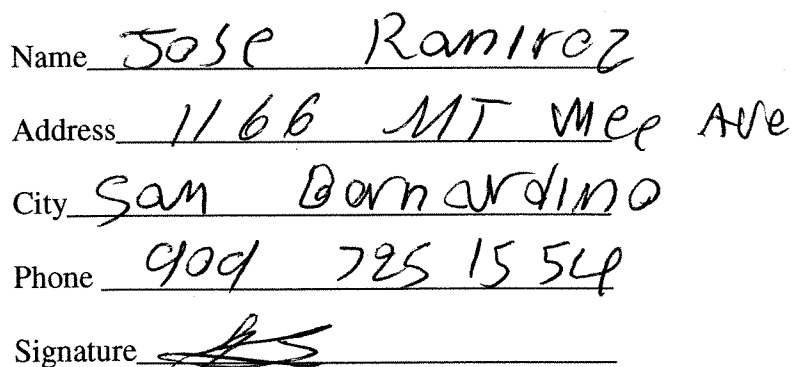 Name Jose Ramirez
Address 1166 MT Ave
City San Bernardino
Phone 909 725 1554
Signature